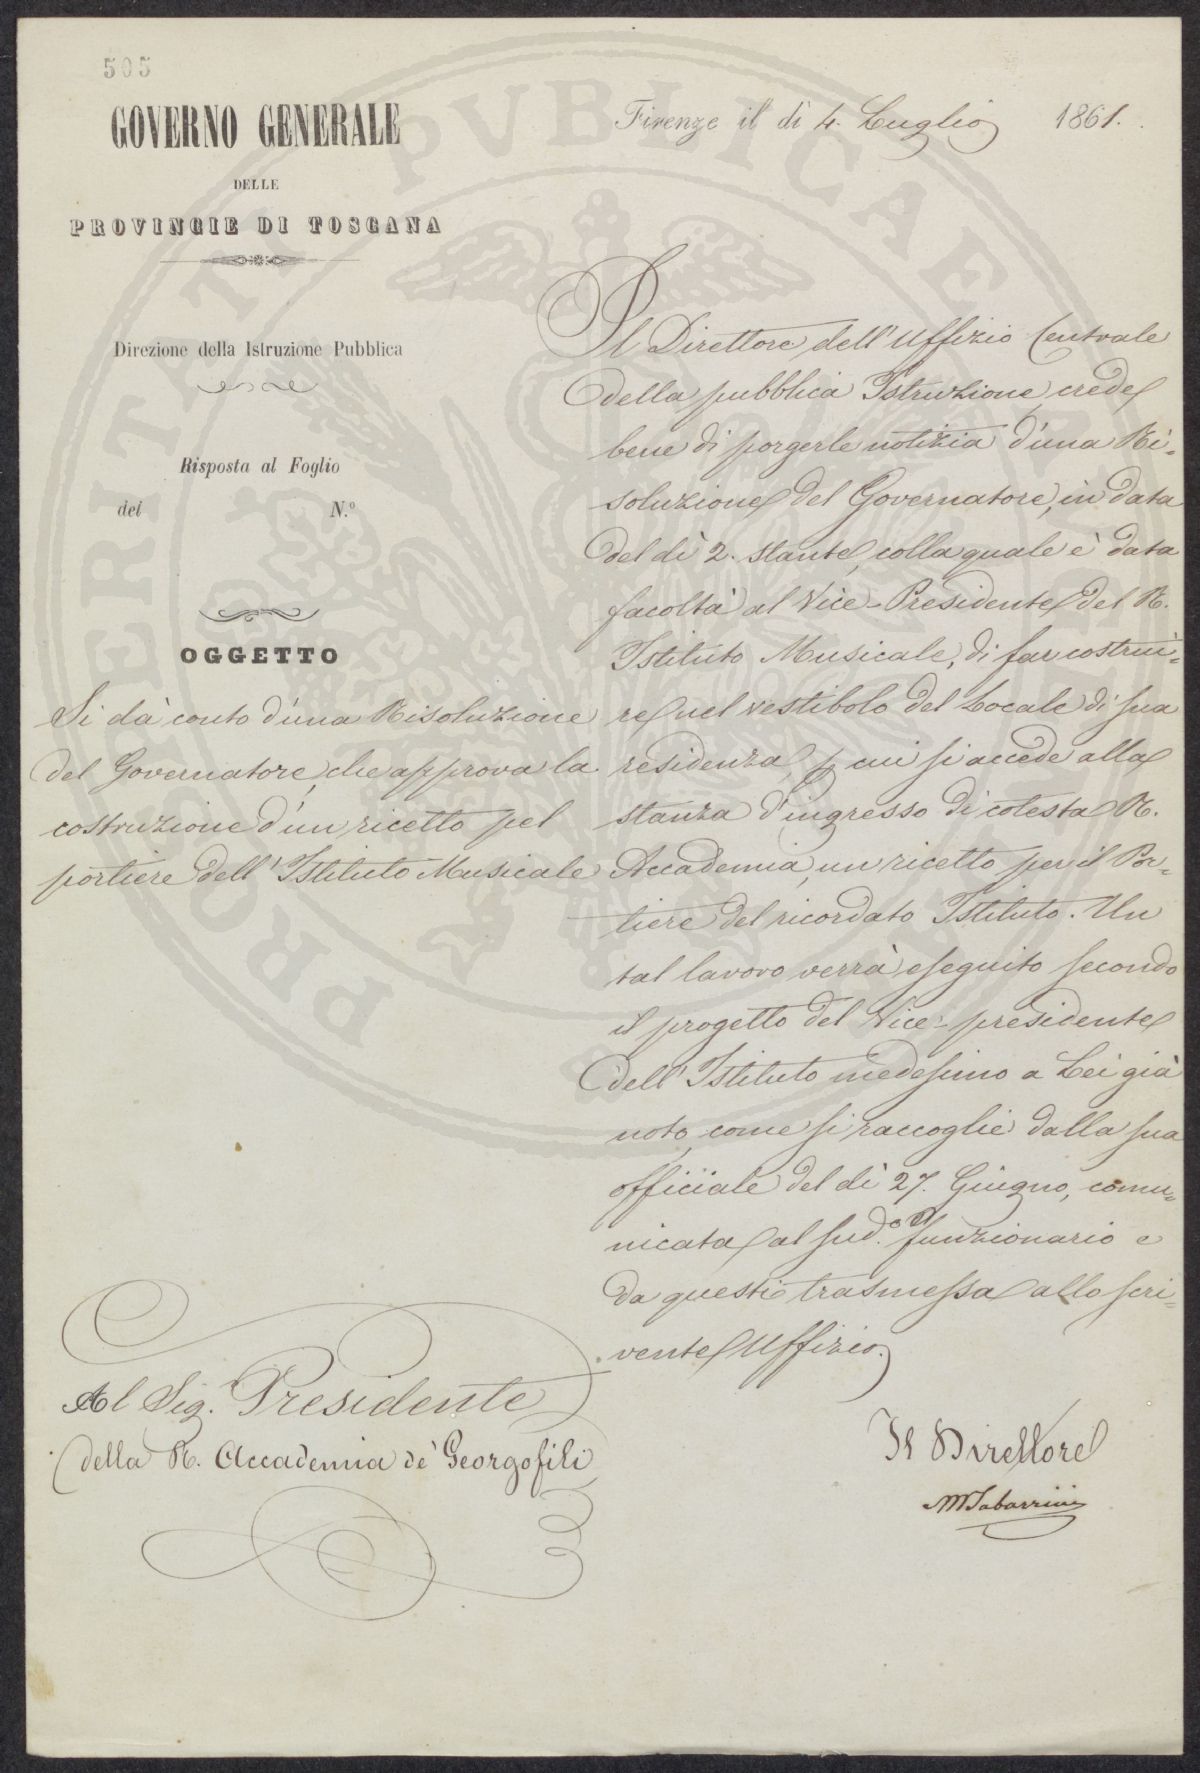 505
GOVERNO GENERALE
DELLE
PROVINCIE DI TOSCANA
Direzione della Istruzione Pubblica
Risposta al Foglio
del N.º
OGGETTO
Si dà conto d'una Risoluzione
del Governatore, che approva la
costruzione d'un ricetto pel
portiere dell'Istituto Musicale
Al Sig. Presidente
della R. Accademia de' Georgofili
Firenze il dì 4. Luglio 1861.
Il Direttore dell'Uffizio Centrale
della pubblica Istruzione, crede
bene di porgerle notizia d'una Ri=
soluzione del Governatore, in data
del dì 2. stante, colla quale è data
facoltà al Vice-Presidente del R.
Istituto Musicale, di far costrui=
re nel vestibolo del Locale di sua
residenza, p cui si accede alla
stanza d'ingresso di cotesta R.
Accademia, un ricetto per il Por=
tiere del ricordato Istituto. Un
tal lavoro verrà eseguito secondo
il progetto del Vice-presidente
dell'Istituto medesimo a Lei già
noto, come si raccoglie dalla sua
officiale del dì 27. Giugno, comu=
nicata al sud.º funzionario e
da questi trasmessa allo scri=
vente Uffizio.
Il Direttore
M Tabarrini
PROSPERITATI PVBLICAE